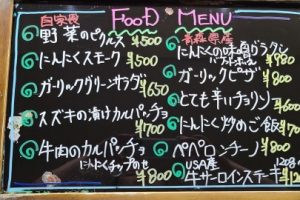 FOOD MENU
自家製
野菜のピクルス ¥500
にんにくスモーク ¥500
ガーリックグリーンサラダ ¥650
スズキの漬けカルパッチョ ¥700
牛肉のカルパッチョ
にんにくチップのせ ¥800
青森県産
にんにくの味噌グラタン
バゲット ¥980
ガーリックピザ ¥800
とても辛いチョリソン ¥600
にんにく炒めご飯 ¥70
ペペロンチーノ ¥800
USA産 120g
牛サーロインステーキ ¥12